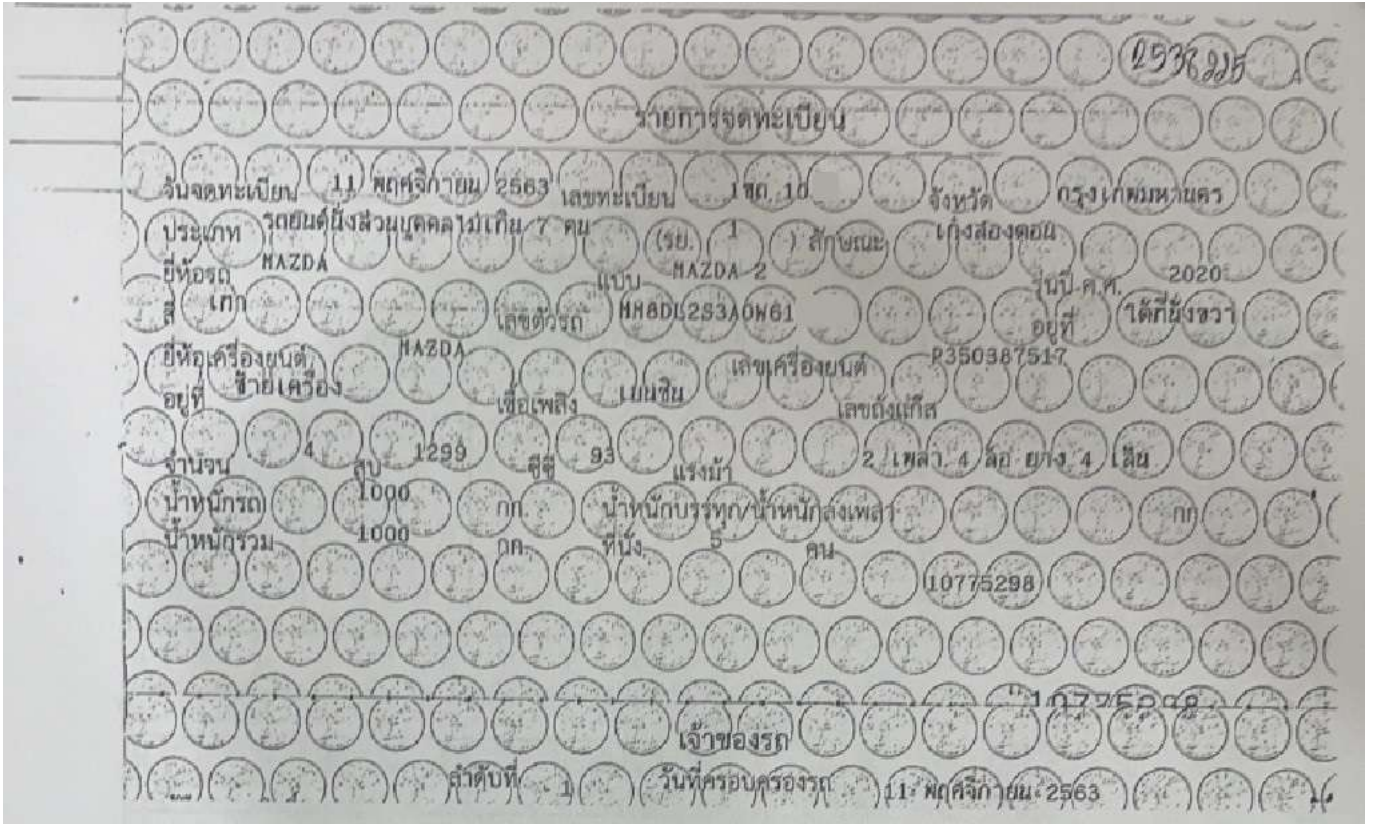 2538225
รายการจดทะเบียน
วันจดทะเบียน 11 พฤศจิกายน 2563 เลขทะเบียน 1ขถ 10 จังหวัด กรุงเทพมหานคร
ประเภท รถยนต์นั่งส่วนบุคคลไม่เกิน 7 คน (รย. 1 ) ลักษณะ เก๋งสองตอน
ยี่ห้อรถ MAZDA แบบ MAZDA 2 รุ่นปี ค.ศ. 2020
สี เทา เลขตัวรถ MM8DL2S3A0W61 อยู่ที่ ใต้ที่นั่งขวา
ยี่ห้อเครื่องยนต์ MAZDA เลขเครื่องยนต์ P350387517
อยู่ที่ ซ้ายเครื่อง เชื้อเพลิง เบนซิน เลขถังแก๊ส
จำนวน 4 สูบ 1299 ซีซี 93 แรงม้า 2 เพลา 4 ล้อ ยาง 4 เส้น
น้ำหนักรถ 1000 กก. น้ำหนักบรรทุก/น้ำหนักลงเพลา กก.
น้ำหนักรวม 1000 กก. ที่นั่ง 5 คน
10775298
10775298
เจ้าของรถ
ลำดับที่ 1 วันที่ครอบครองรถ 11 พฤศจิกายน 2563